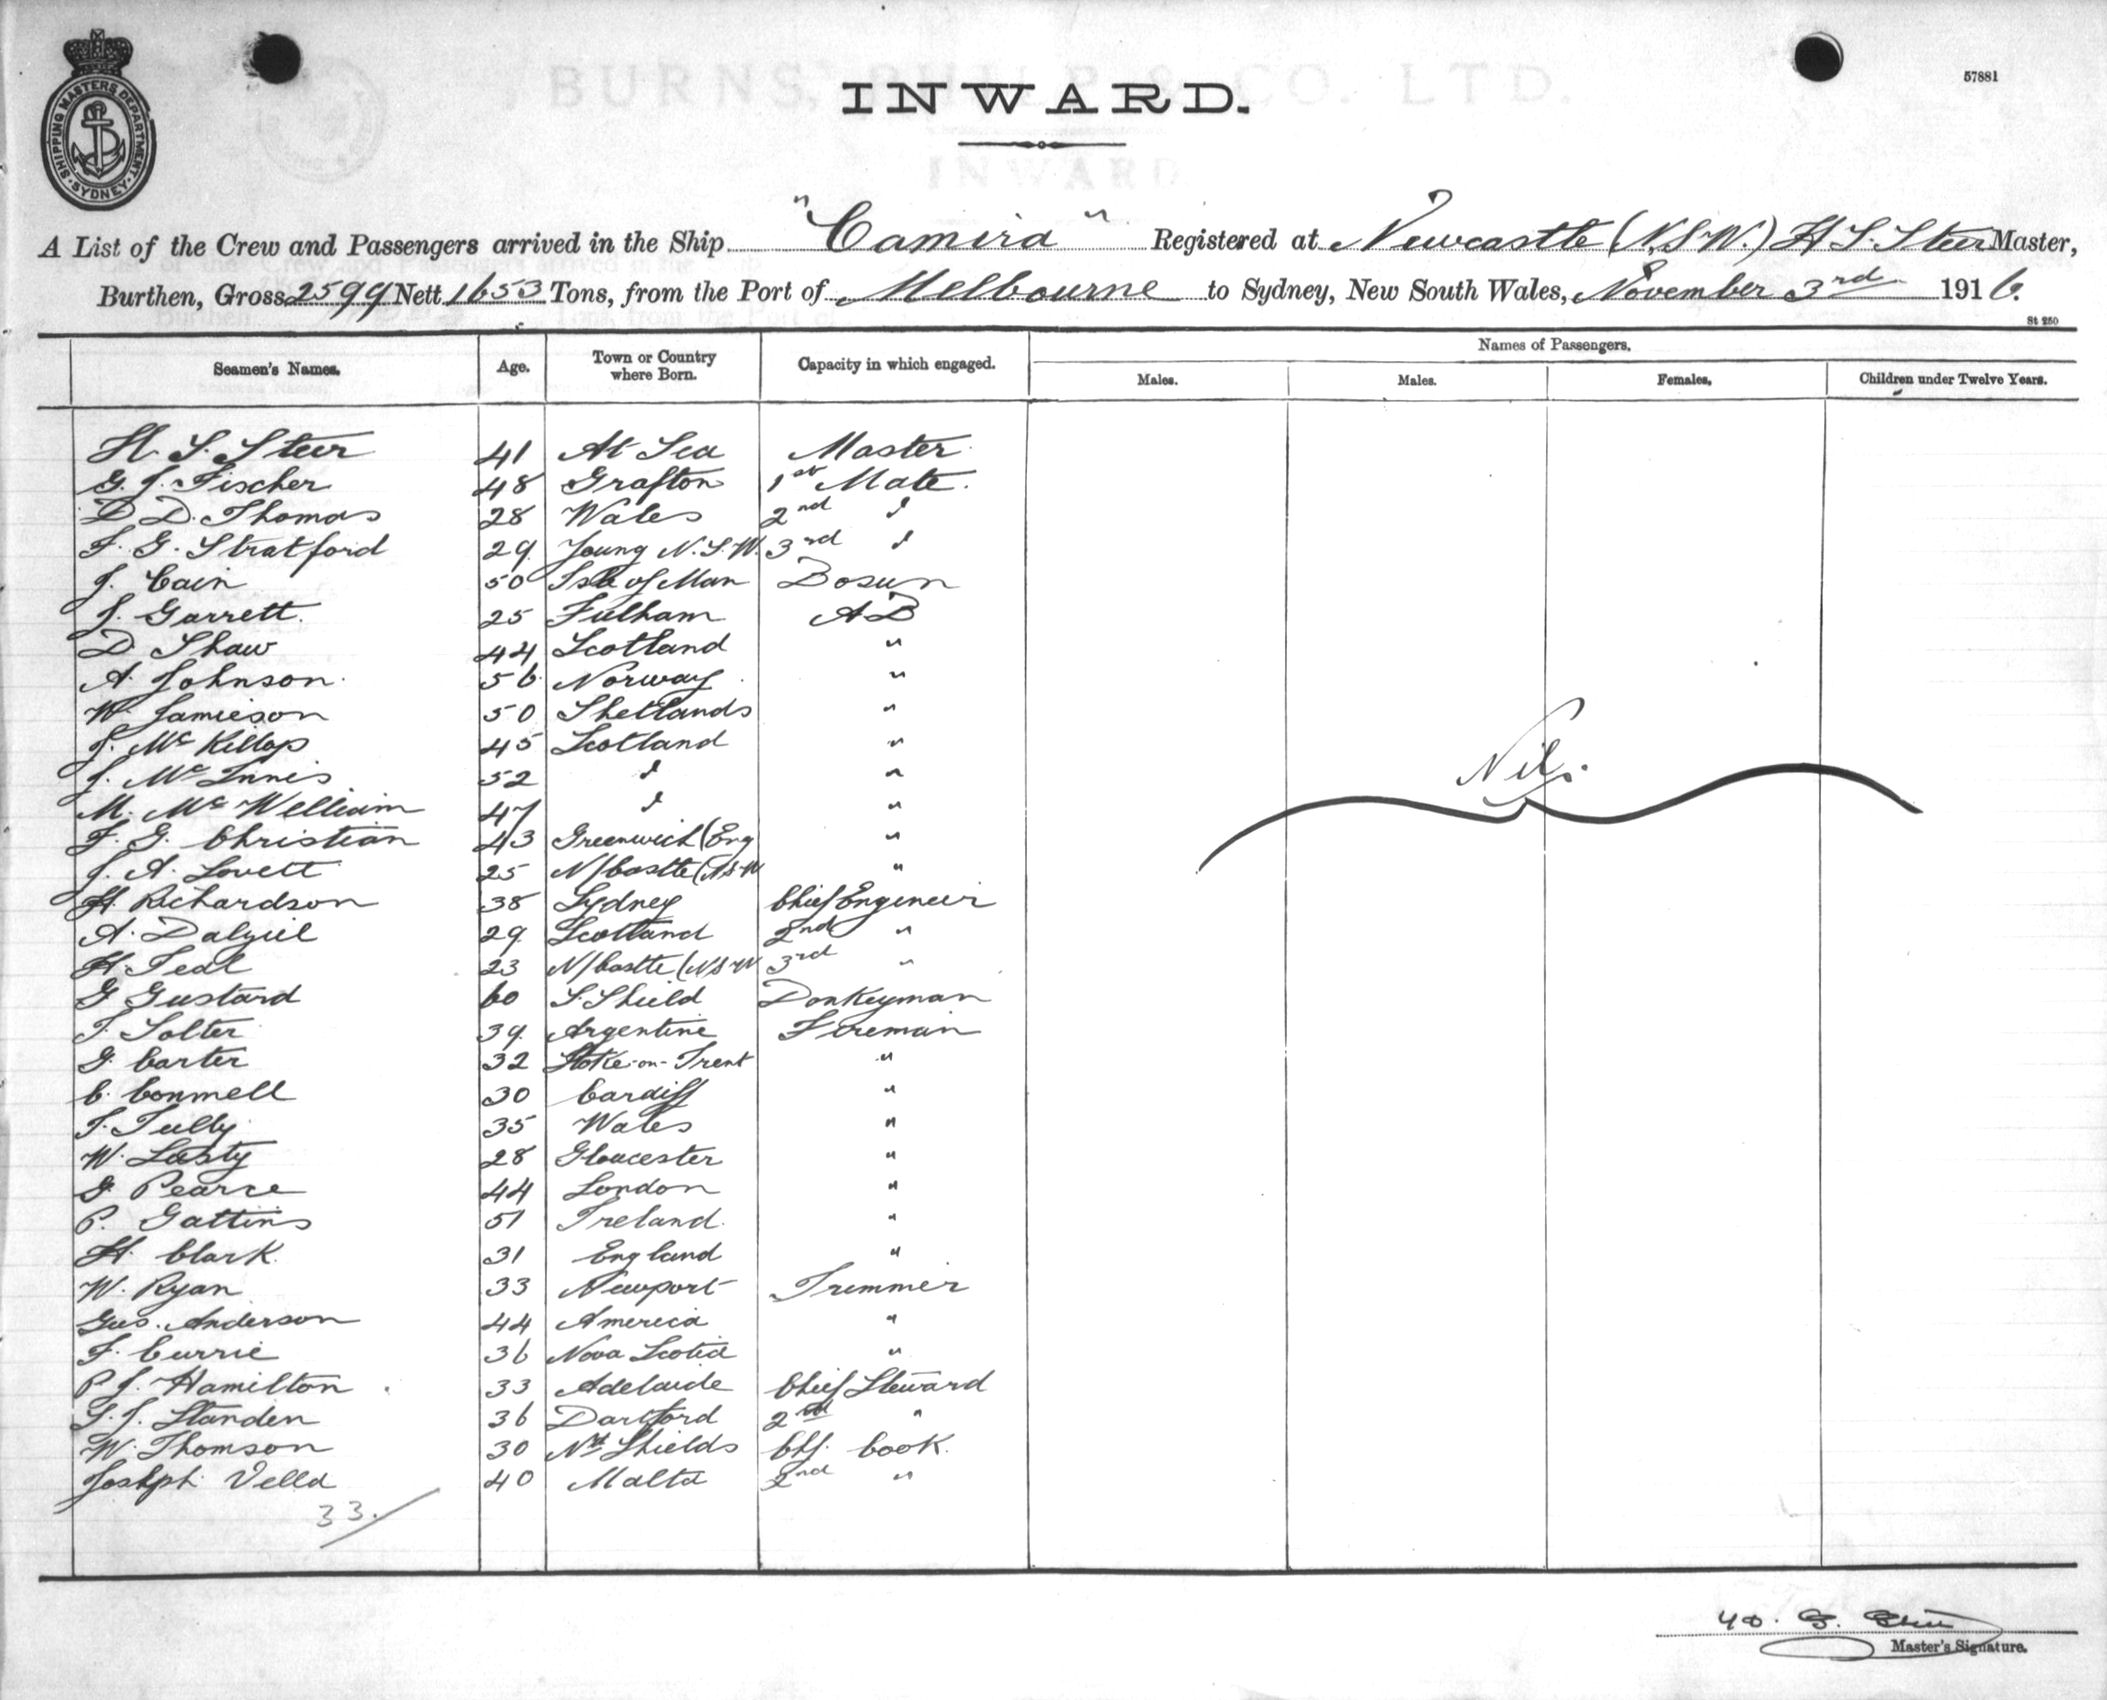 57881
SHIPPING MASTERS DEPARTMENT · SYDNEY ·
INWARD.
A List of the Crew and Passengers arrived in the Ship "Camira" Registered at Newcastle (N.S.W.) H S. Steer Master,
Burthen, Gross 2599 Nett 1653 Tons, from the Port of Melbourne to Sydney, New South Wales, November 3rd 1916.
St 250
Seamen's Names. Age. Town or Country where Born. Capacity in which engaged. Names of Passengers.
Males. Males. Females. Children under Twelve Years.
H. S. Steer 41 At Sea Master
G. J. Fischer 48 Grafton 1st Mate.
D D. Thomas 28 Wales 2nd "
F. G. Stratford 29 Young N.S.W. 3rd "
J. Cain 50 Isle of Man Bosun
J. Garrett. 25 Fulham AB
D. Shaw 44 Scotland "
A. Johnson. 56 Norway "
W. Jamieson 50 Shetlands "
J. McKillop 45 Scotland "
J. McInnis 52 " "
M. McWilliam 47 " "
F. G. Christian 43 Greenwich (Eng "
J. A. Lovett 25 N/Castle (N S W "
H Richardson 38 Sydney Chief Engineer
A. Dalziel 29 Scotland 2nd "
H. Teal 23 N/Castle (N S W 3rd "
G Gustard 60 S. Shield Donkeyman
T. Solter 39 Argentine Fireman
G. Carter 32 Stoke-on-Trent "
C. Conmell 30 Cardiff "
T. Tully 35 Wales "
W. Lasty 28 Gloucester "
G. Pearce 44 London "
P. Gattins 51 Ireland. "
H. Clark. 31 England "
W. Ryan 33 Newport Trimmer
Gus. Anderson 44 America "
F. Currie 36 Nova Scotia "
P J. Hamilton 33 Adelaide Chief Steward
S. J. Standen 36 Dartford 2nd "
W. Thomson 30 Nth Shields Chf. Cook.
Joseph Vella 40 Malta 2nd "
Nil.
33.
H. S. Steer
Master's Signature.